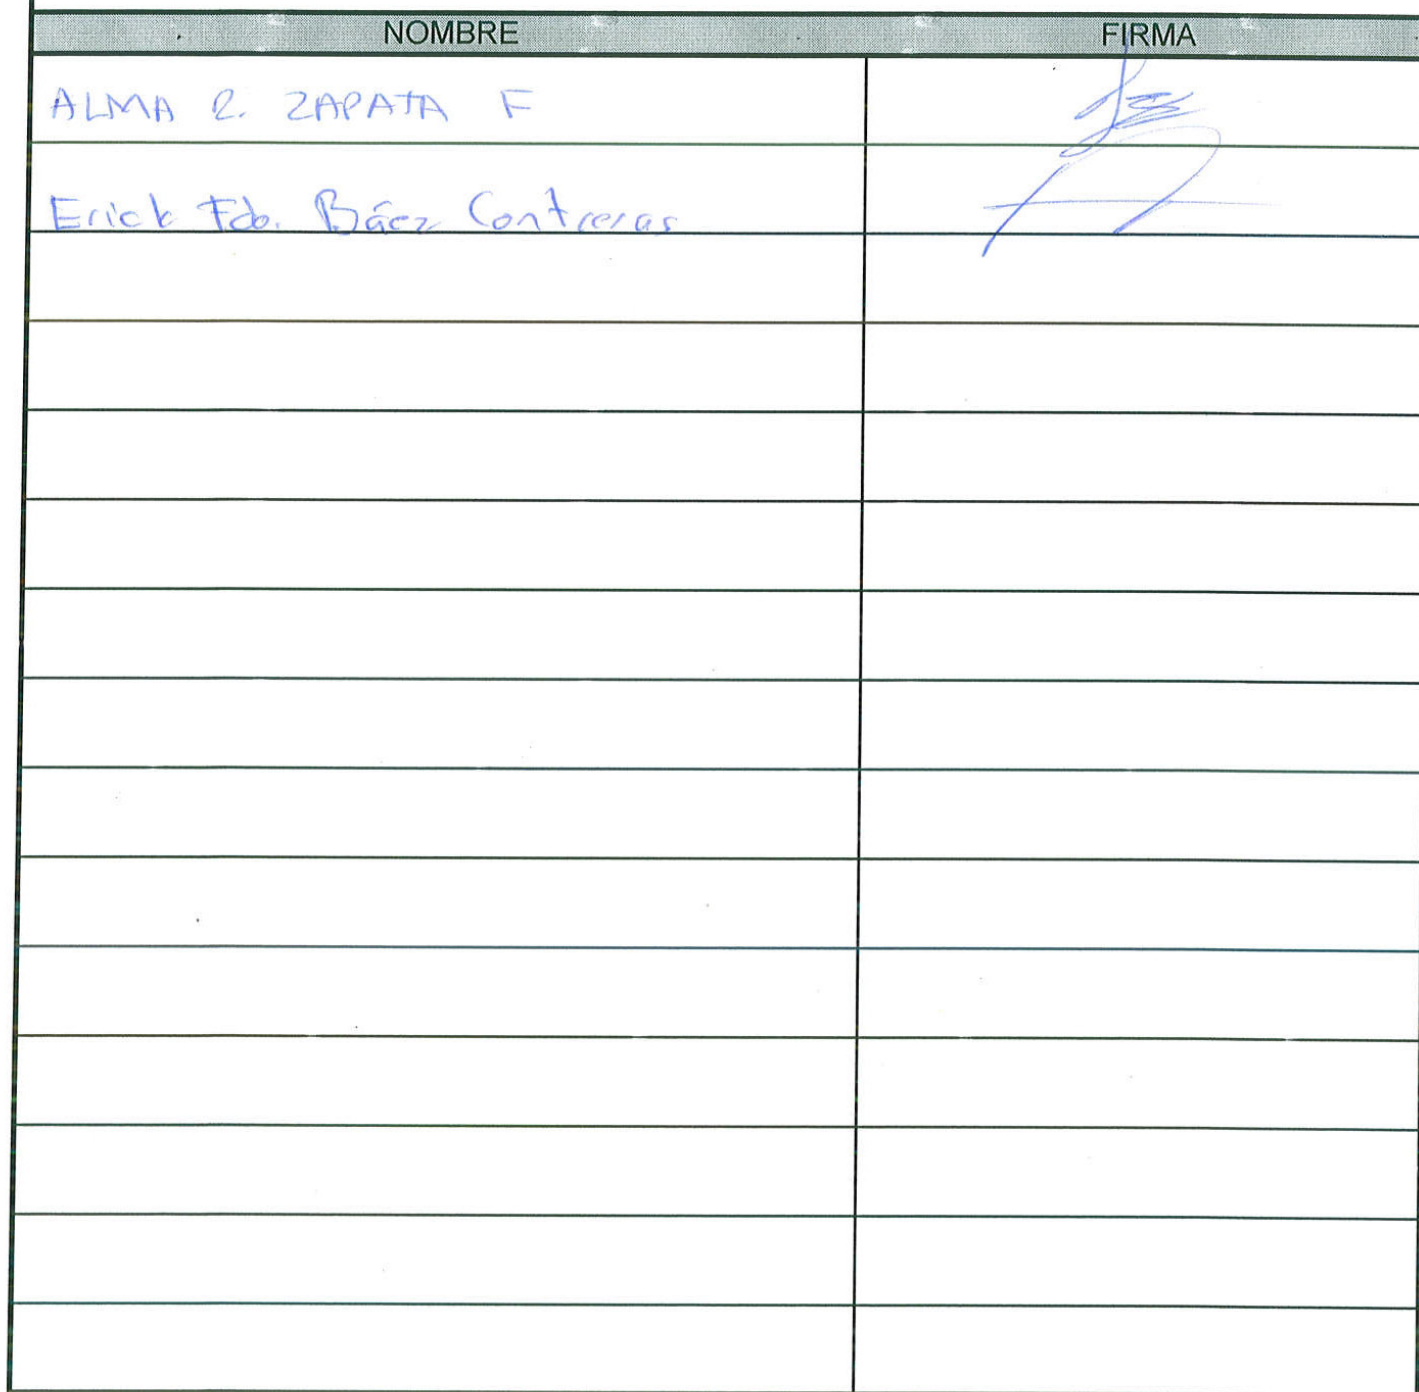 NOMBRE FIRMA
ALMA R. ZAPATA F
Erick Fdo. Báez Contreras